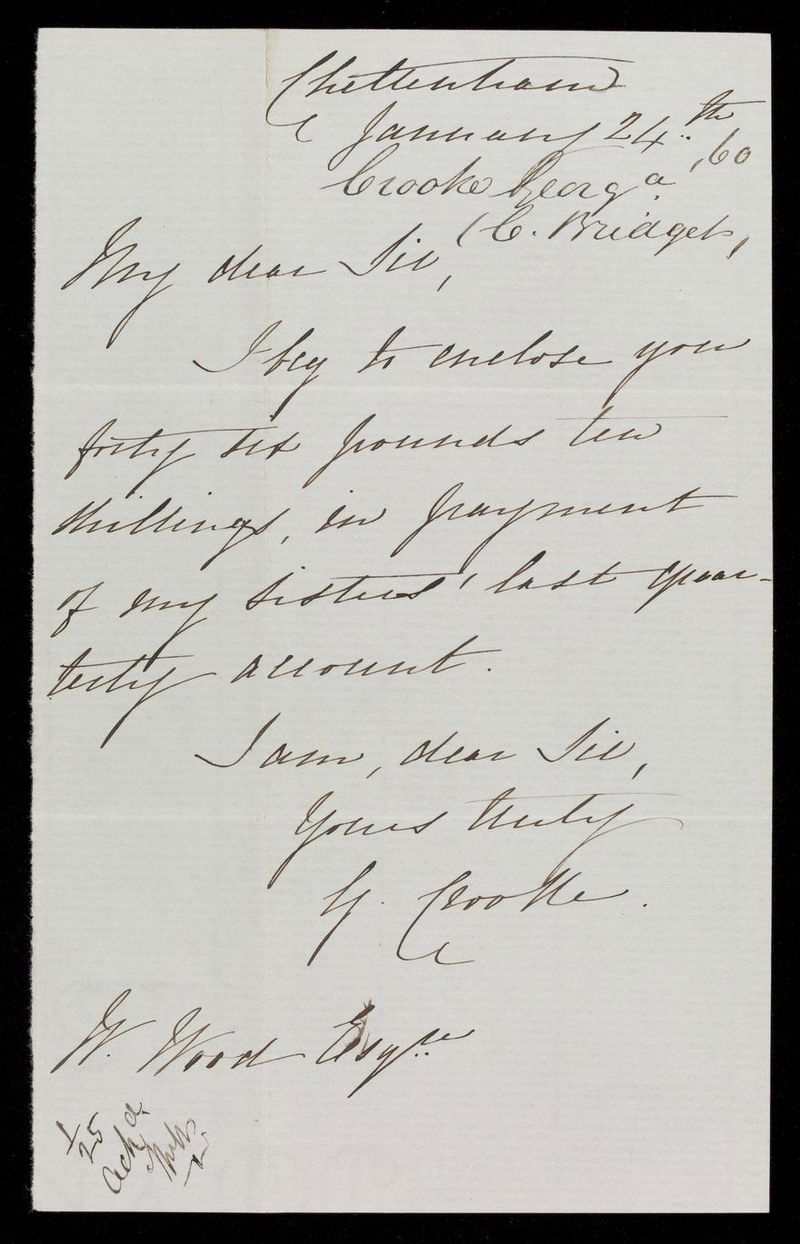 Cheltenham
January 24th
,60
Crooke Georga
(C. Bridget,
My dear Sir,
I beg to enclose you
forty six pounds ten
shillings, in payment
of my sisters' last quar-
terly account.
I am, dear Sir,
Yours truly
G. Crooke.
W. Wood Esqre
1/25
Ackd.